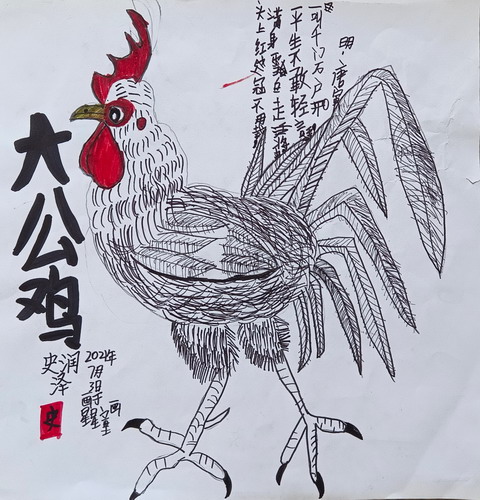 大公鸡
明:唐寅
头上红冠不用裁
满身雪白走将来
平生不敢轻言语
一叫千门万户开
史润泽
2024年
7月
3日
画
史